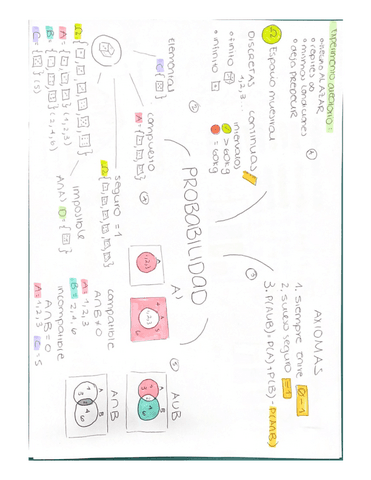 PROBABILIDAD
Experimento aleatorio:
AL AZAR
repetido
mismas condiciones
deja predecir
Ω Espacio muestral
DISCRETAS
1, 2, 3
finito
infinito
continuas
intervalos
> 60kg
= 60kg
elemental
compuesto
A:
seguro = 1
Ω
imposible
Ω
A = (1, 2, 3)
B = (2, 4, 6)
C = (5)
AXIOMAS
1. siempre entre 0-1
2. suceso seguro = 1
3. P(AUB) = P(A) + P(B) - P(A∩B)
compatible
A∩B ≠ 0
A = 1, 2, 3
B = 2, 4, 6
incompatible
A∩B = 0
A = 1, 2, 3 C = 5
AUB
A∩B